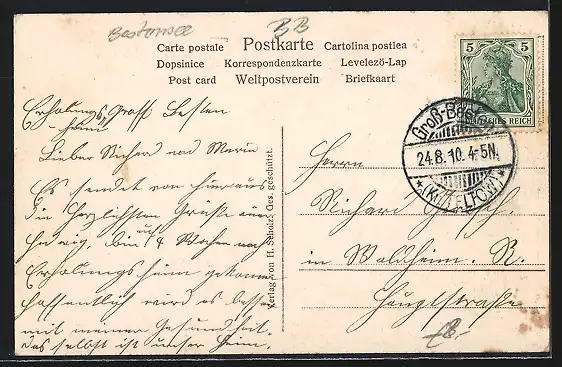 Bestensee
BB
Carte postale Postkarte Cartolina postlea
Dopsinice Korrespondenzkarte Levelezö-Lap
Post card Weltpostverein Briefkaart
5 5
DEUTSCHES REICH
24.8.10. 4-5N.
Erholungs
-heim
Lieber Richard und
Es sendet von hieraus
die herzlichsten Grüße
bin auf 4 Wochen nach
Erholungsheim gekommen
hoffentlich wird es besser
mit meiner Gesundheit.
das selbst ist unser Heim.
Verlag von H. Scholz. Ges. geschützt.
Herrn
Richard
in Waldheim. S.
Hauptstraße